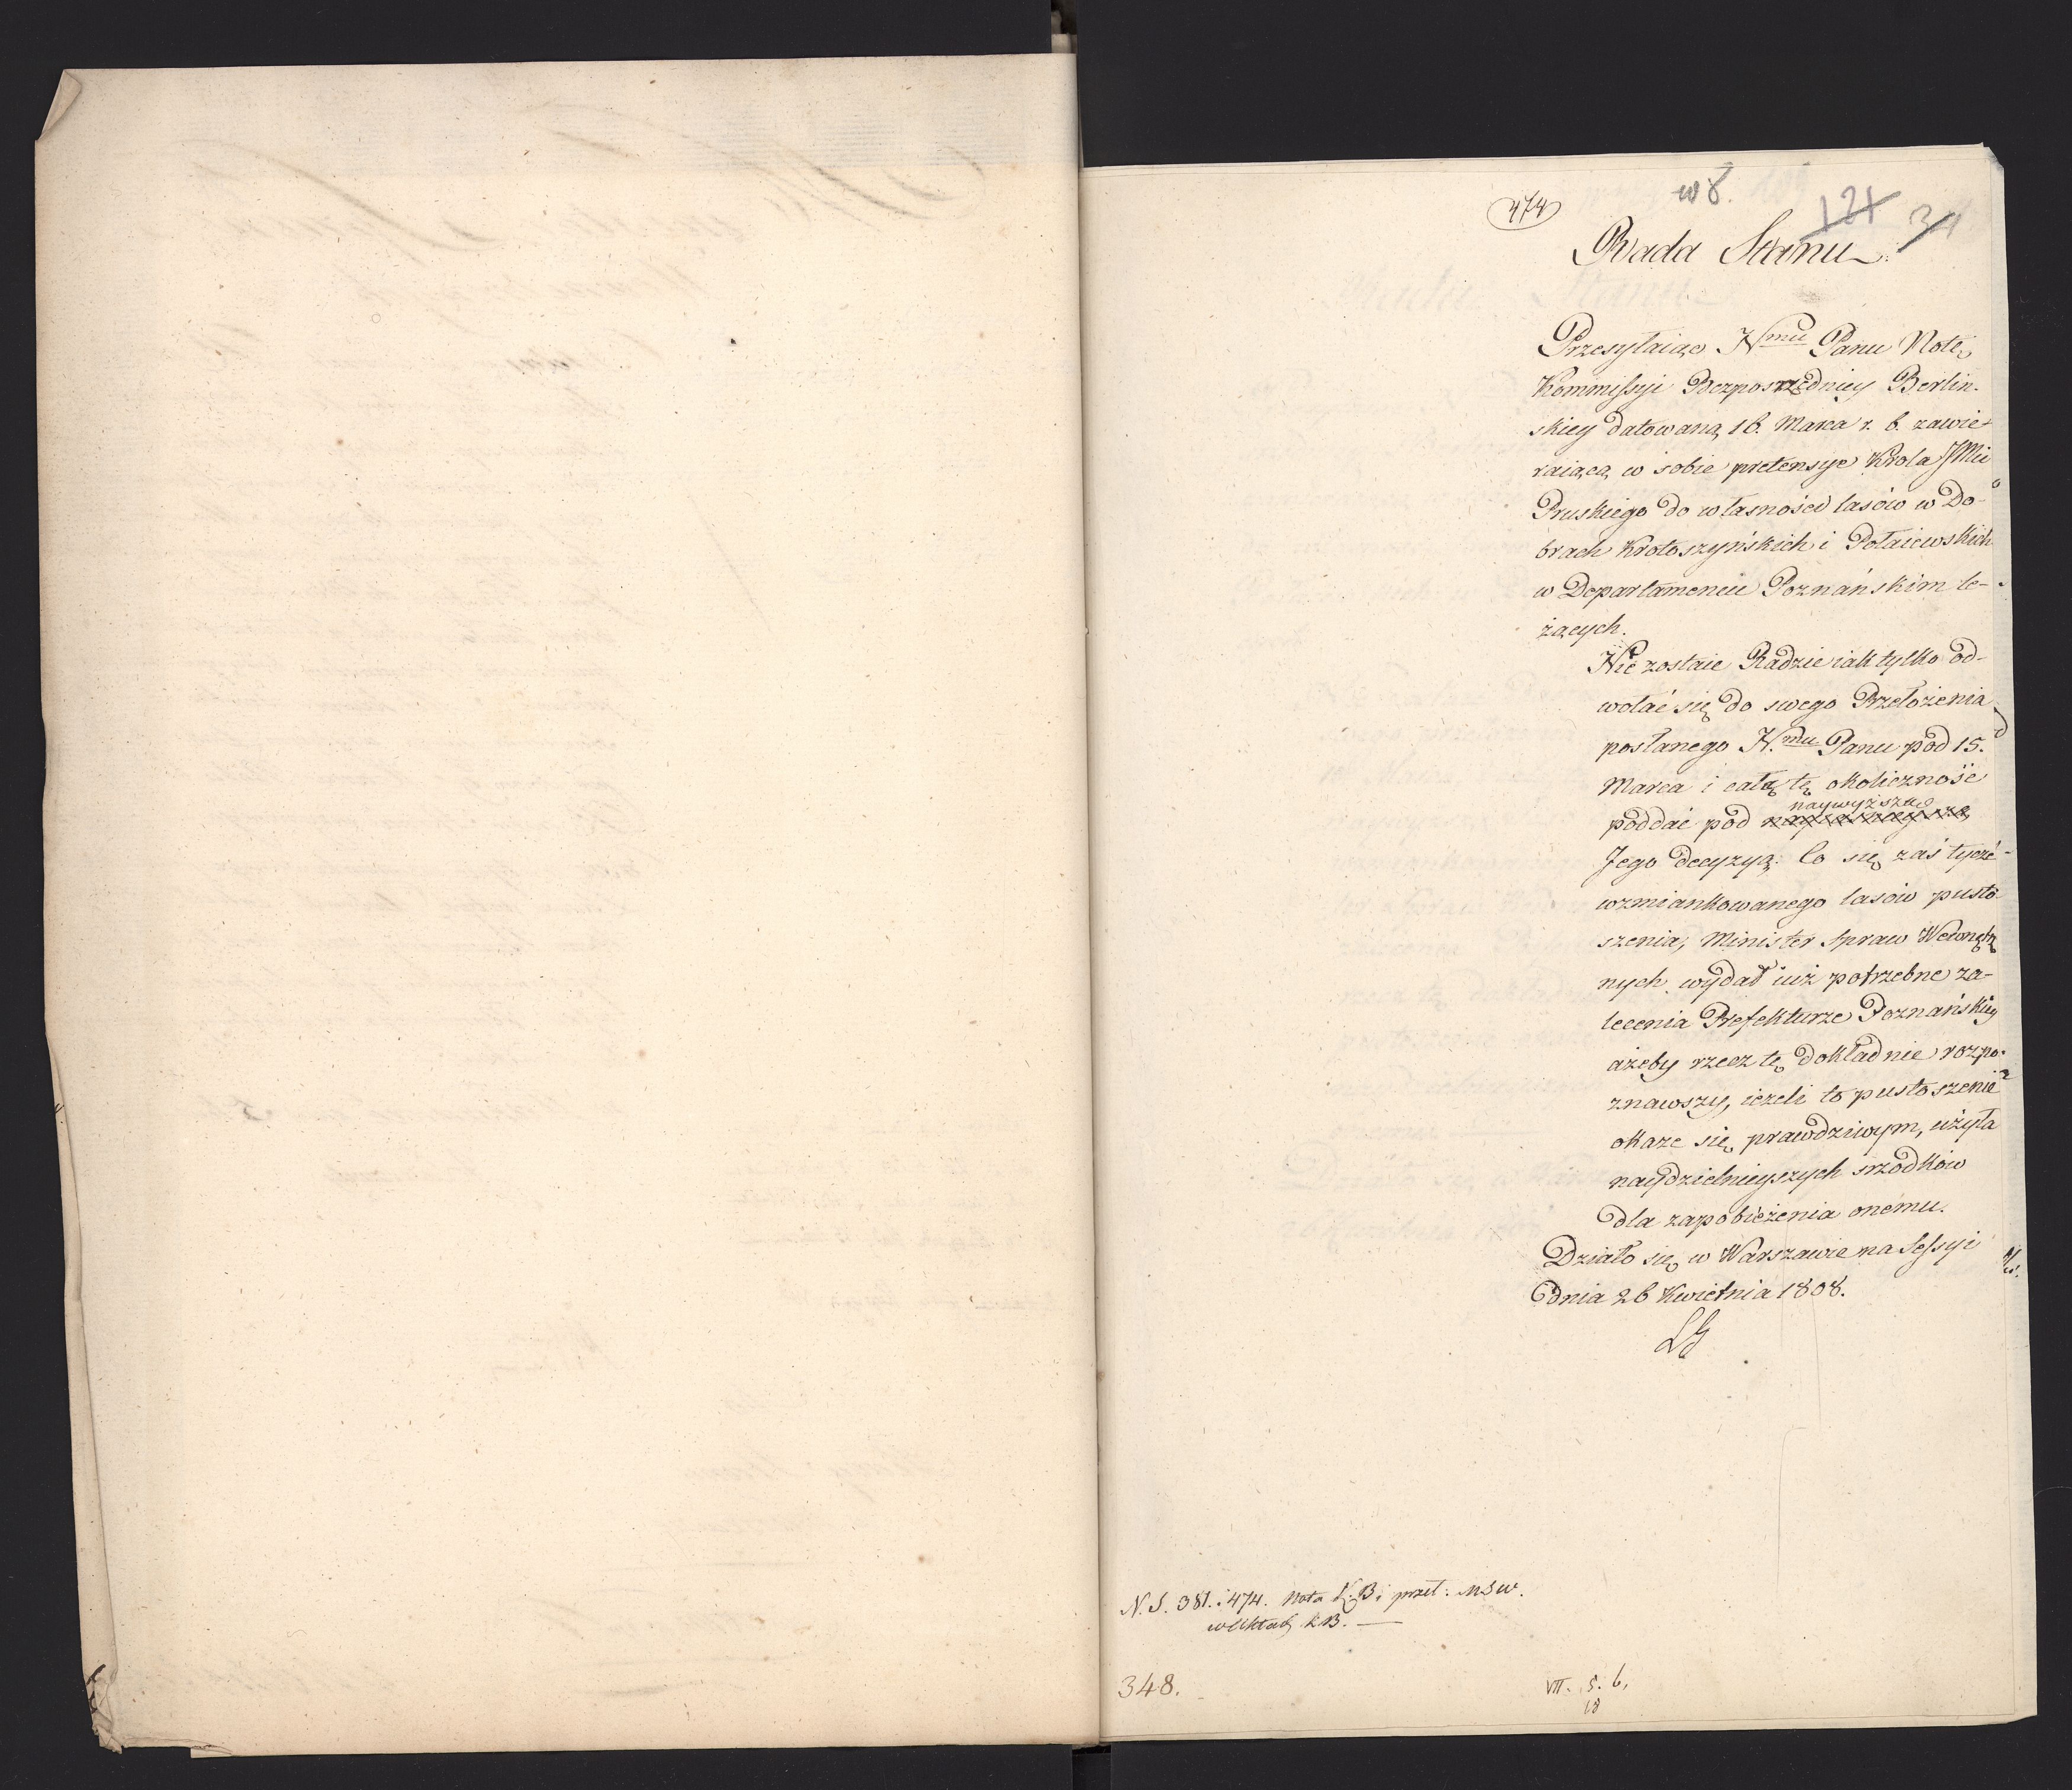 474
w 8.
121
31
Rada Stanu
Przesyłaiąc N^mu Panu Notę
Kommissyi Bezposrzędniey Berlin-
skiey datowaną 16. Marca r. b. zawie-
raiącą w sobie pretensye Krola JMci
Pruskiego do własności lasów w Do-
brach Krotoszyńskich i Połaiewskich
w Departamencie Poznańskim le-
żących.
Nie zostaie Radzie iak tylko od-
wołać się do swego Przełożenia
posłanego N.^mu Panu pod 15.
Marca i całą tę okoliczność
naywyższą
poddać pod
Jego decyzyą. Co się zaś tycze
wzmiankowanego lasów pusto-
szenia, Minister Spraw Wewnętrz
nych wydał iuż potrzebne za-
lecenia Prefekturze Poznańskiey
ażeby rzecz tę dokładnie rozpo-
znawszy, ieżeli to pustoszenie
okaże się prawdziwym, użyła
naydzielnieyszych srzodków
dla zapobieżenia onemu.
Działo się w Warszawie na Sessyi
dnia 26 Kwietnia 1808.
LG
N. S. 381. i 474. Nota K. B. i przeł: MSW.
w Układ K B.
348.
VII. 5. 6,
18